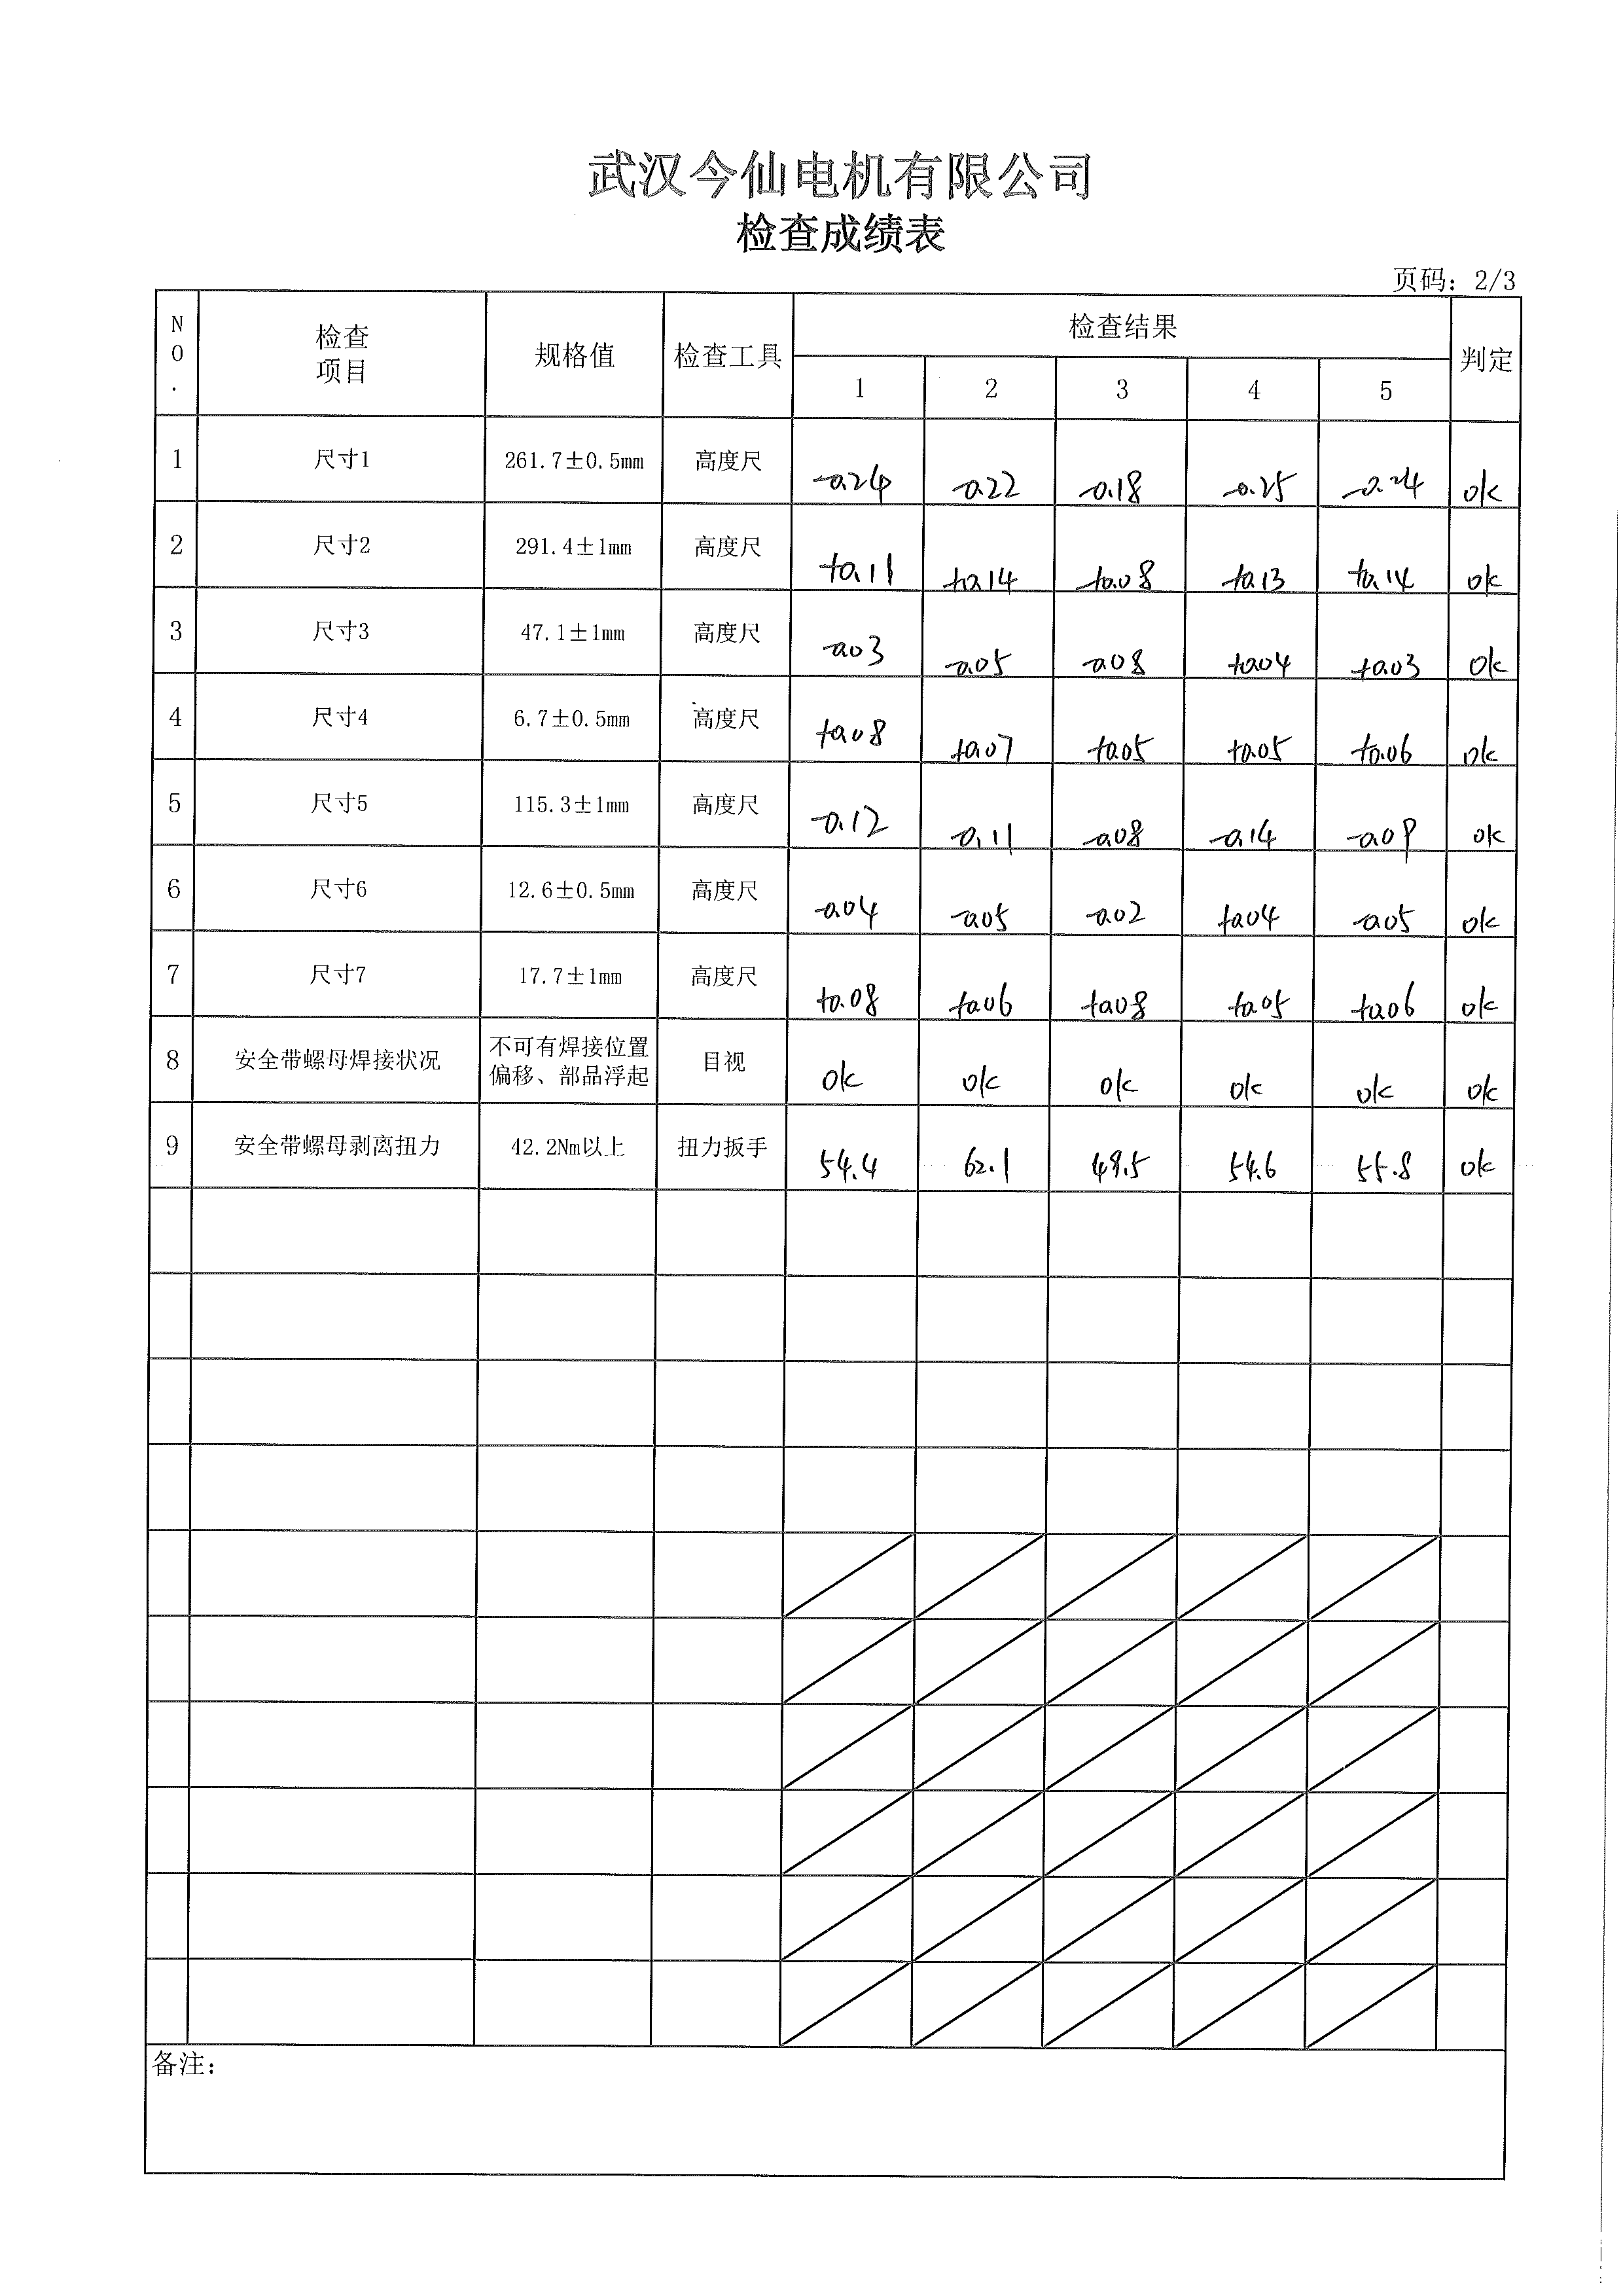 武汉今仙电机有限公司
检查成绩表
页码：2/3
NO. 检查项目 规格值 检查工具 检查结果 判定
1 2 3 4 5
1 尺寸1 261.7±0.5mm 高度尺 -0.24 -0.22 -0.18 -0.25 -0.24 ok
2 尺寸2 291.4±1mm 高度尺 +0.11 +0.14 +0.08 +0.13 +0.14 ok
3 尺寸3 47.1±1mm 高度尺 -0.03 -0.05 -0.08 +0.04 +0.03 ok
4 尺寸4 6.7±0.5mm 高度尺 +0.08 +0.07 +0.05 +0.05 +0.06 ok
5 尺寸5 115.3±1mm 高度尺 -0.12 -0.11 -0.08 -0.14 -0.09 ok
6 尺寸6 12.6±0.5mm 高度尺 -0.04 -0.05 -0.02 +0.04 -0.05 ok
7 尺寸7 17.7±1mm 高度尺 +0.08 +0.06 +0.08 +0.05 +0.06 ok
8 安全带螺母焊接状况 不可有焊接位置偏移、部品浮起 目视 ok ok ok ok ok ok
9 安全带螺母剥离扭力 42.2Nm以上 扭力扳手 54.4 62.1 49.5 54.6 55.8 ok
备注：